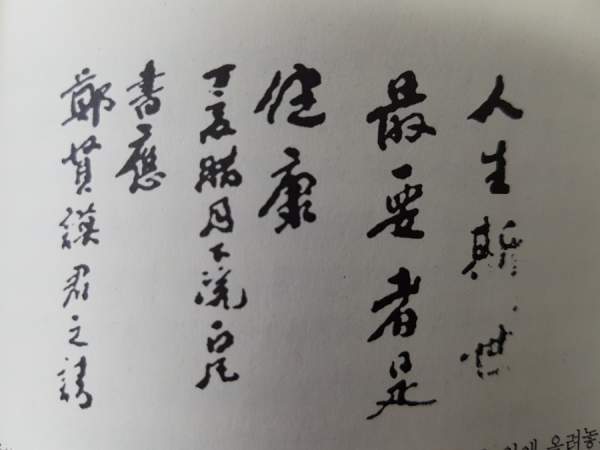 人生斯世
最要者是
健康
丁亥臘月下浣白凡
書應
鄭贊謨君之請
올려놓